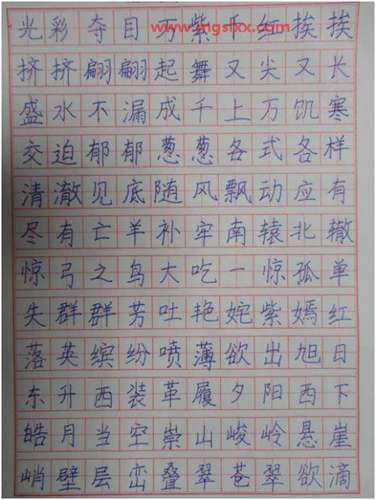 www.mgsfxx.com
光彩夺目万紫千红挨挨
挤挤翩翩起舞又尖又长
盛水不漏成千上万饥寒
交迫郁郁葱葱各式各样
清澈见底随风飘动应有
尽有亡羊补牢南辕北辙
惊弓之鸟大吃一惊孤单
失群群芳吐艳姹紫嫣红
落英缤纷喷薄欲出旭日
东升西装革履夕阳西下
皓月当空崇山峻岭悬崖
峭壁层峦叠翠苍翠欲滴